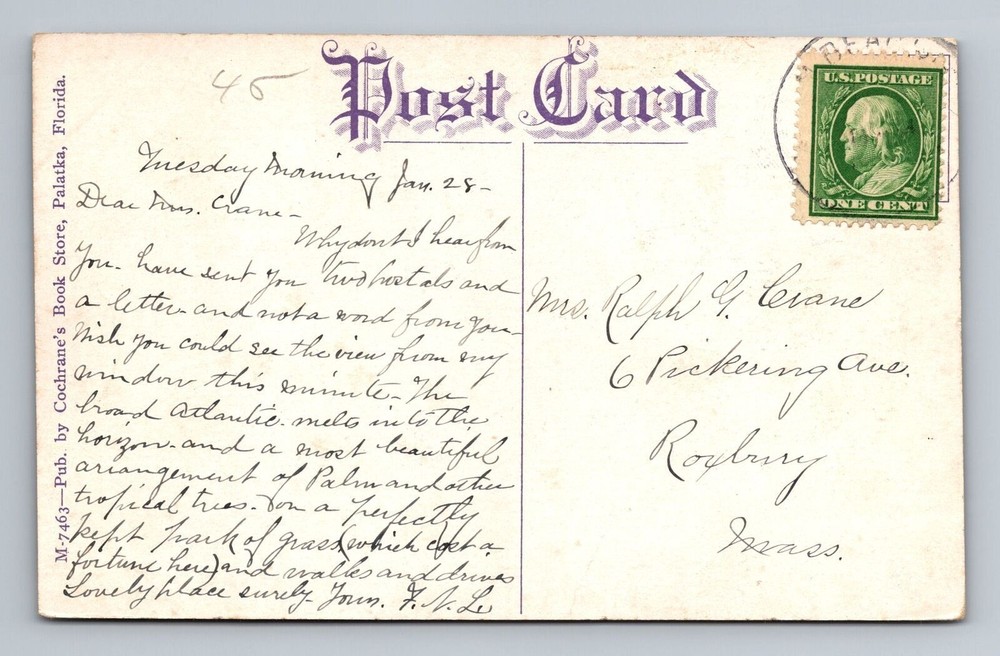 45
Post Card
BEACH
U.S. POSTAGE
ONE CENT
M-7463—Pub. by Cochrane's Book Store, Palatka, Florida.
Tuesday Morning Jan. 28-
Dear Mrs. Crane-
Why dont I hear from
You- have sent you two postals and
a letter- and not a word from you-
Wish you could see the view from my
window this minute- The
broad Atlantic- melts into the
horizon- and a most beautiful
arrangement of Palm and other
tropical trees- on a perfectly
kept park of grass (which cost a
fortune here) and walks and drives
Lovely place surely- Yours. F. N. L.
Mrs. Ralph G. Crane
6 Pickering Ave.
Roxbury
Mass.